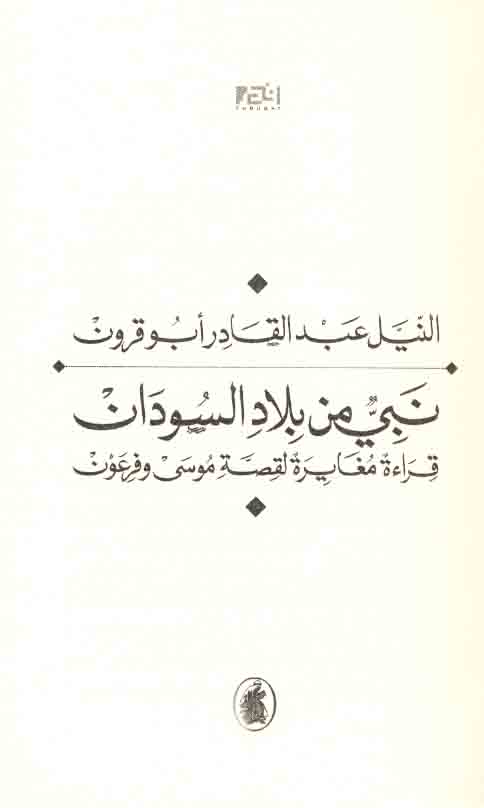 THOUGHT
النّيَل عَبْد القَادِر أبُو قرونْ
نَبِيٌّ مِن بِلادِ السُودَانْ
قِرَاءةٌ مُغَايِرَةٌ لقِصَّةِ مُوسَىْ وفِرعَوْنْ